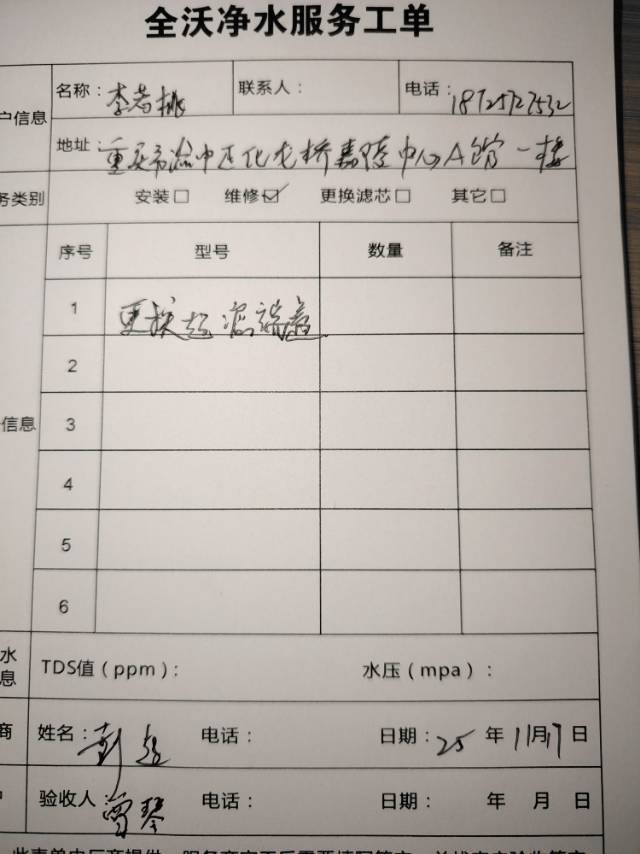 全沃净水服务工单
户信息 名称：李若桃 联系人： 电话：18725727532
地址：重庆市渝中区化龙桥嘉陵中心A馆一楼
务类别 安装□ 维修☑ 更换滤芯□ 其它□
序号 型号 数量 备注
1 更换超滤端盖
2
信息 3
4
5
6
水 TDS值（ppm）： 水压（mpa）：
息
商 姓名： 电话： 日期：25年11月17日
户 验收人：曾琴 电话： 日期： 年 月 日